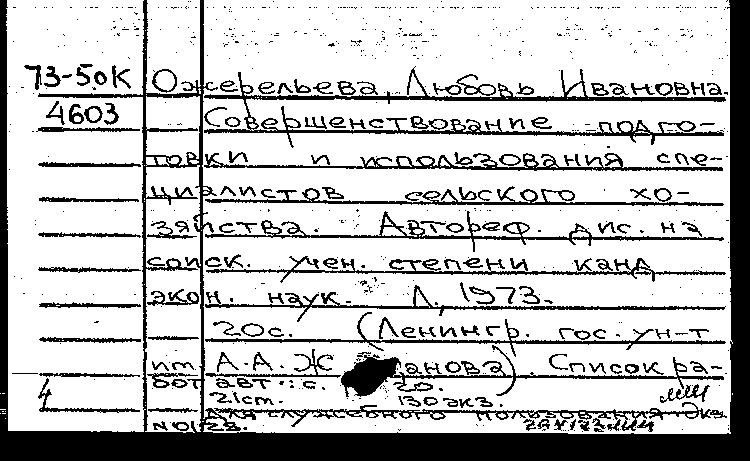 73-5.0К Ожерельева, Любовь Ивановна.
4603 Совершенствование подго-
товки и использования спе-
циалистов сельского хо-
зяйства. Автореф. дис. на
соиск. учен. степени канд
экон. наук. Л, 1973.
20с. (Ленингр. гос. ун-т
им А.А. Ж анова). Список ра-
бот авт.: с. 20.
4 21ст. 130 экз.
для служебного пользования Экз
N0123.